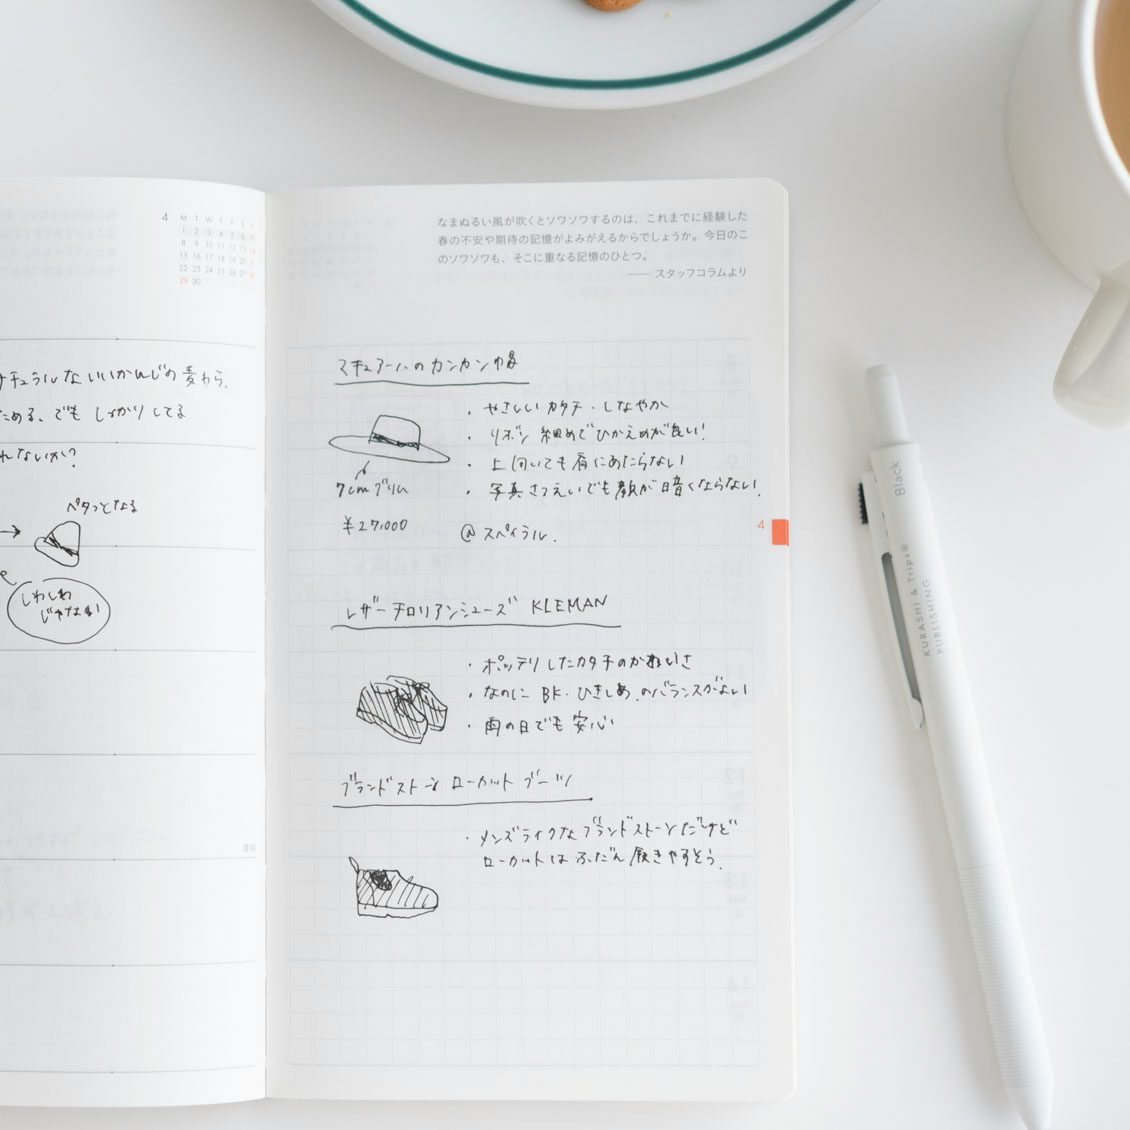 4
M T W T F S S
1 2 3 4 5 6 7
8 9 10 11 12 13 14
15 16 17 18 19 20 21
22 23 24 25 26 27 28
29 30
チュラルないいかんじの麦わら、
ためる、でも しっかりしてる
れないかい?
ペタっとなる
しわしわ
じゃない
なまぬるい風が吹くとソワソワするのは、これまでに経験した
春の不安や期待の記憶がよみがえるからでしょうか。今日のこ
のソワソワも、そこに重なる記憶のひとつ。
—— スタッフコラムより
マチュアーハのカンカン帽
・やさしいカタチ・しなやか
・リボン細めでひかえめが良い!
・上向いても肩にあたらない
・写真さつえいでも顔が暗くならない。
7cmブリム
¥27,000
@スパイラル.
4
レザーチロリアンシューズ KLEMAN
・ポッテリしたカタチのかわいさ
・なのに BK・ひきしめ のバランスがよい
・雨の日でも安心
ブランドストーン ローカットブーツ
・メンズライクなブランドストーンだけど
ローカットはふだん履きやすそう。
Black
KURASHI & Trips®
PUBLISHING